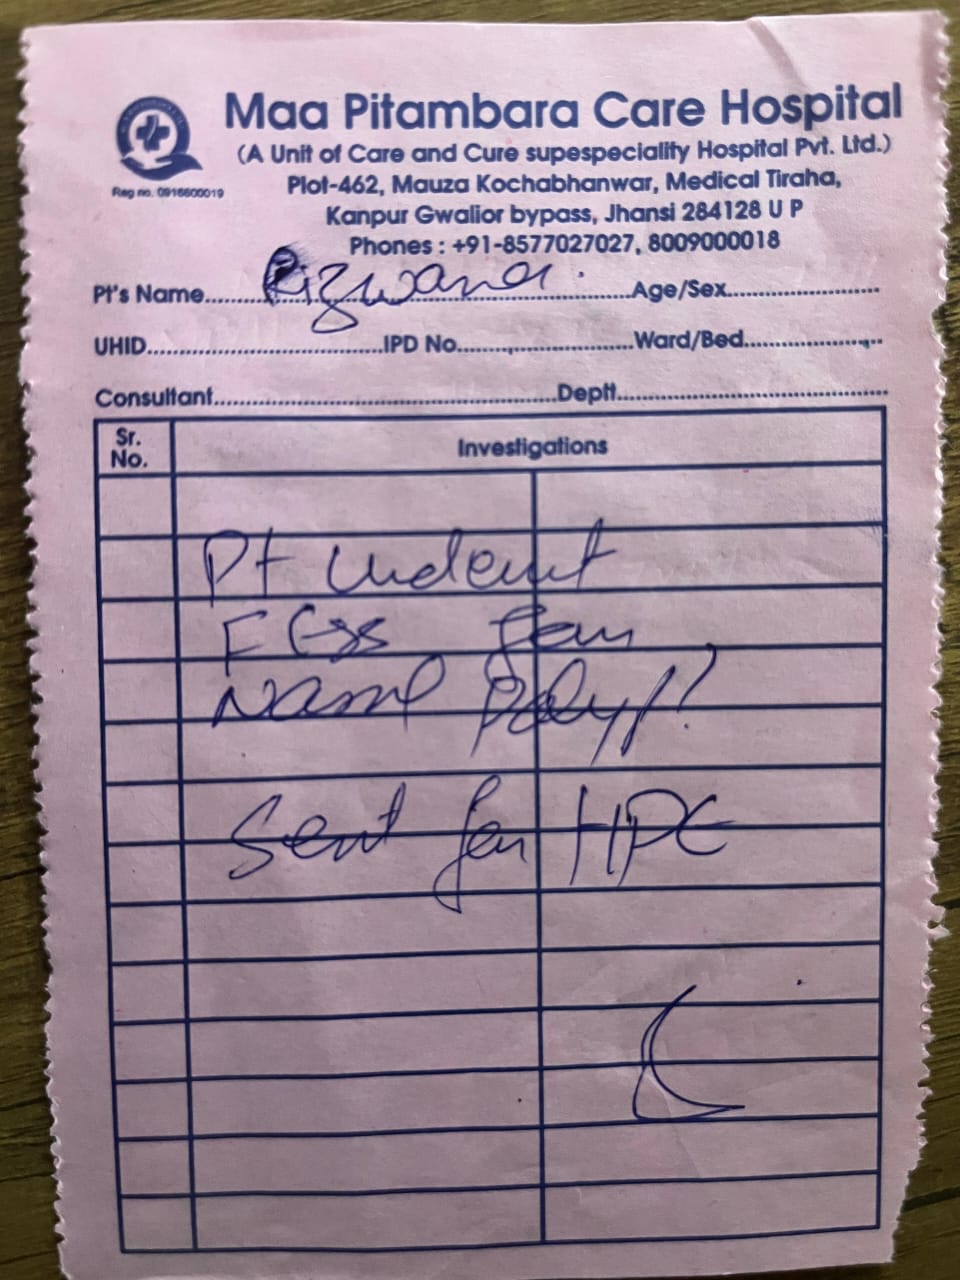 Maa Pitambara Care Hospital
(A Unit of Care and Cure supespeciality Hospital Pvt. Ltd.)
Reg no. 0916600019
Plot-462, Mauza Kochabhanwar, Medical Tiraha,
Kanpur Gwalior bypass, Jhansi 284128 U P
Phones : +91-8577027027, 8009000018
Pt's Name Rizwana. Age/Sex
UHID IPD No. Ward/Bed
Consultant Deptt.
Sr. No. Investigations
Pt
FESS for
Nasal Polyp?
Sent for HPE